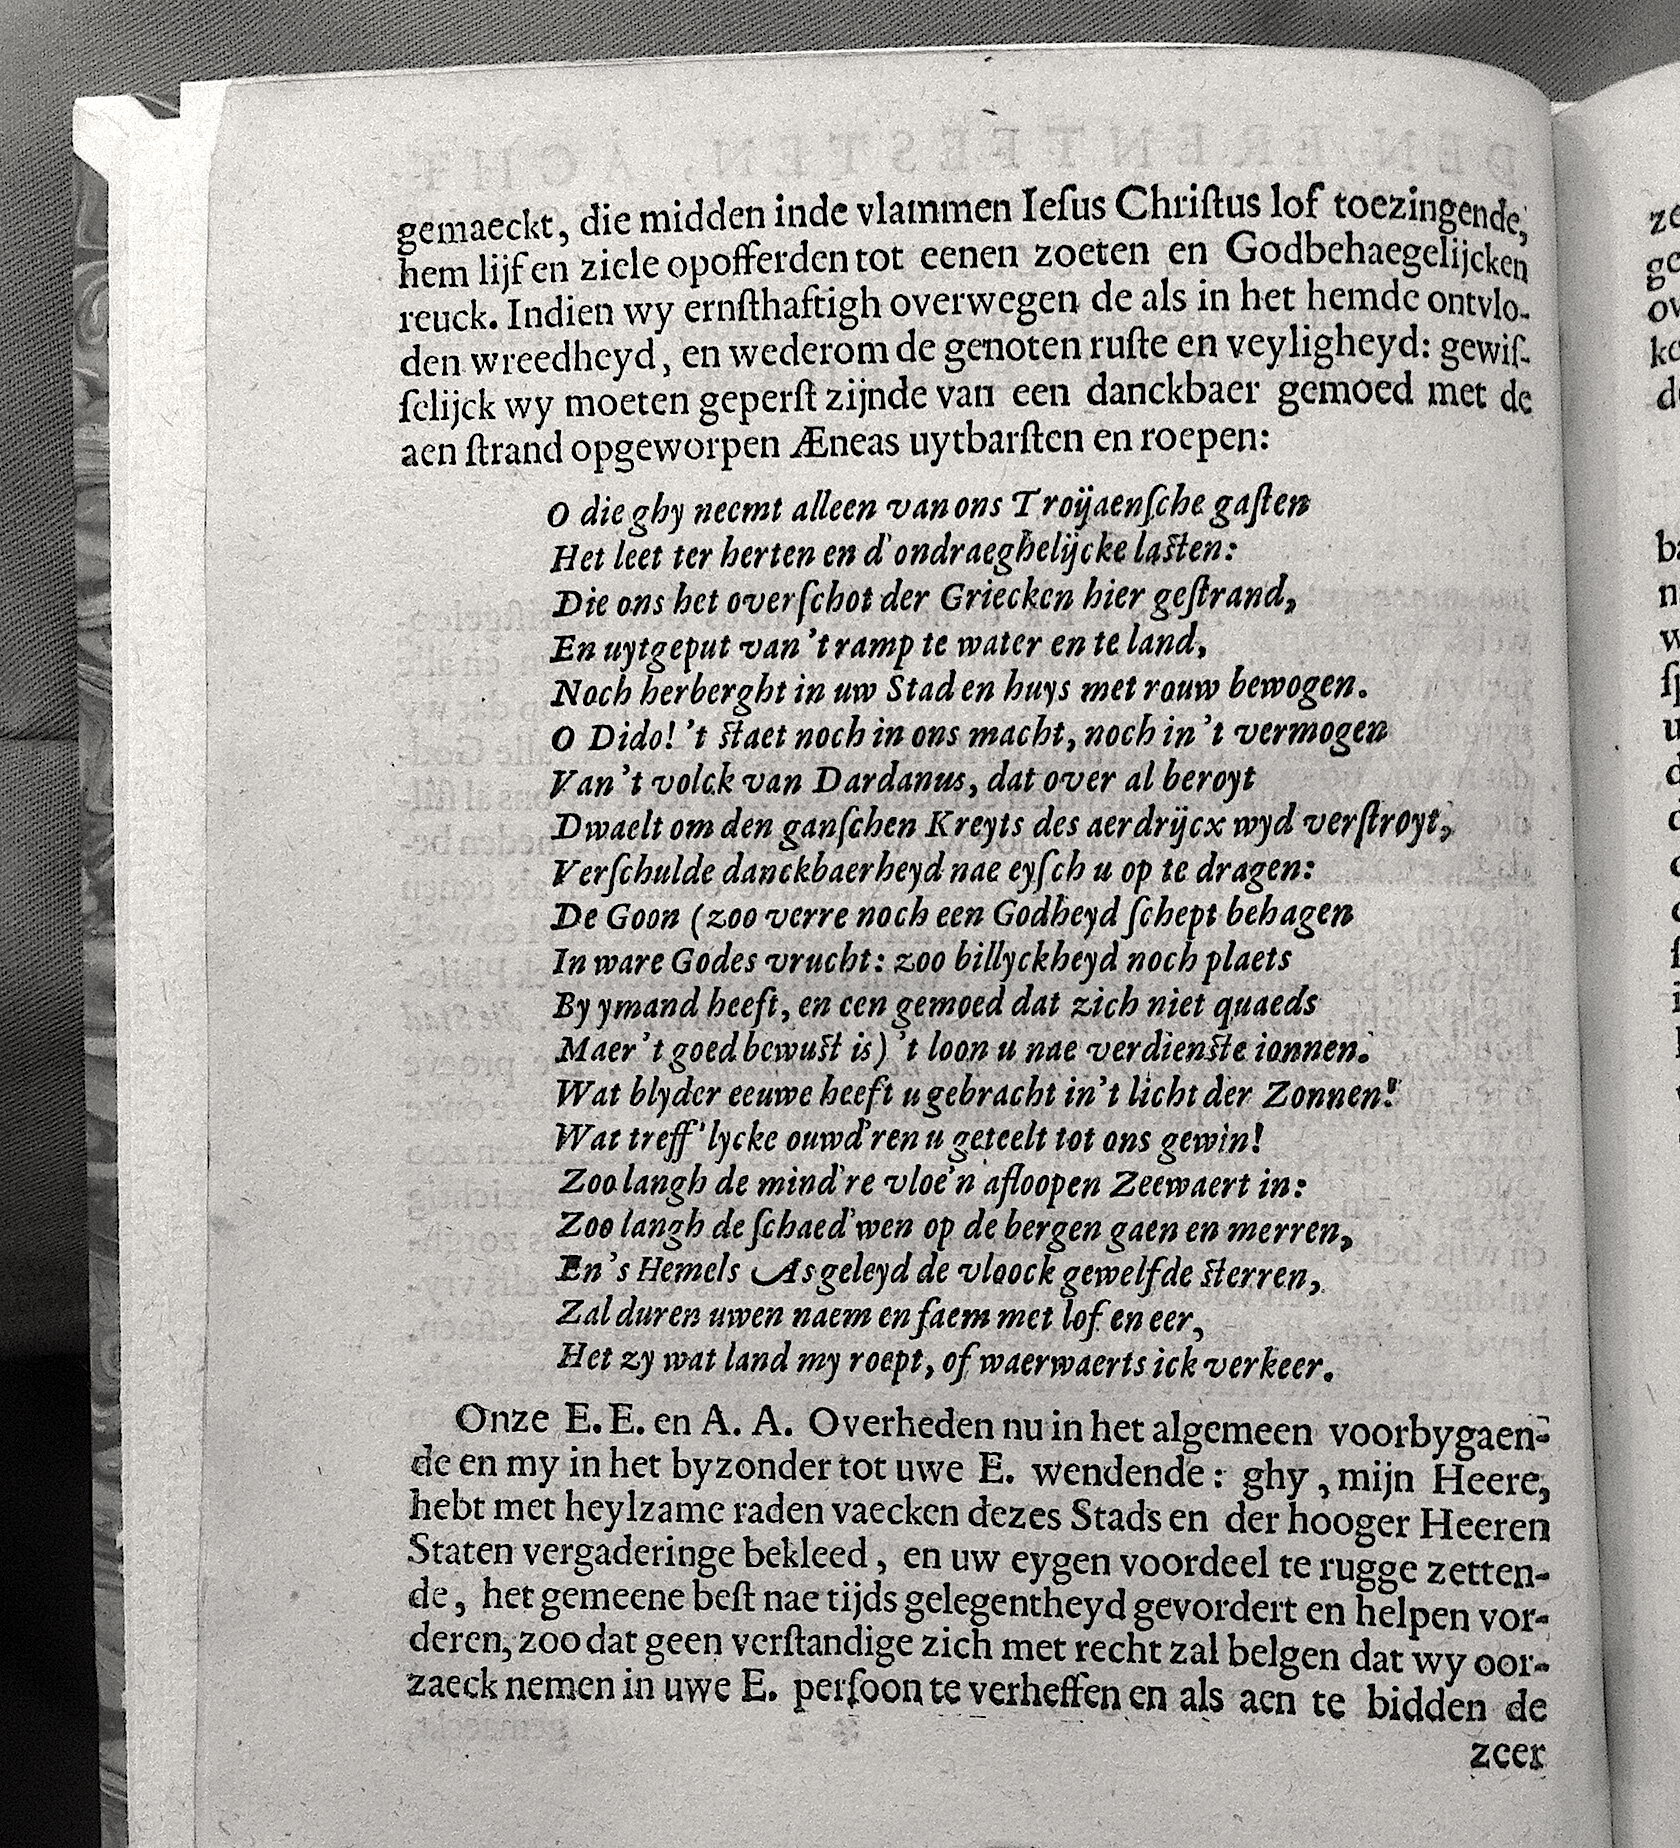 gemaeckt, die midden inde vlammen Ieſus Chriſtus lof toezingende,
hem lijf en ziele opofferden tot eenen zoeten en Godbehaegelijcken
reuck. Indien wy ernſthaftigh overwegen de als in het hemde ontvlo-
den wreedheyd, en wederom de genoten ruſte en veyligheyd: gewiſ-
ſelijck wy moeten geperſt zijnde van een danckbaer gemoed met de
aen ſtrand opgeworpen Æneas uytbarſten en roepen:
O die ghy neemt alleen van ons Troijaenſche gaſten
Het leet ter herten en d'ondraeghelijcke laſten:
Die ons het overſchot der Griecken hier geſtrand,
En uytgeput van 't ramp te water en te land,
Noch herberght in uw Stad en huys met rouw bewogen.
O Dido! 't ſtaet noch in ons macht, noch in 't vermogen
Van 't volck van Dardanus, dat over al beroyt
Dwaelt om den ganſchen Kreyts des aerdrijcx wyd verſtroyt,
Verſchulde danckbaerheyd nae eyſch u op te dragen:
De Goon (zoo verre noch een Godheyd ſchept behagen
In ware Godes vrucht: zoo billyckheyd noch plaets
By ymand heeft, en een gemoed dat zich niet quaeds
Maer 't goed bewuſt is) 't loon u nae verdienſte ionnen.
Wat blyder eeuwe heeft u gebracht in 't licht der Zonnen!
Wat treff'lycke ouwd'ren u geteelt tot ons gewin!
Zoo langh de mind're vloe'n afloopen Zeewaert in:
Zoo langh de ſchaed'wen op de bergen gaen en merren,
En 's Hemels As geleyd de vloock gewelfde ſterren,
Zal duren uwen naem en faem met lof en eer,
Het zy wat land my roept, of waerwaerts ick verkeer.
Onze E. E. en A. A. Overheden nu in het algemeen voorbygaen-
de en my in het byzonder tot uwe E. wendende: ghy, mijn Heere,
hebt met heylzame raden vaecken dezes Stads en der hooger Heeren
Staten vergaderinge bekleed, en uw eygen voordeel te rugge zetten-
de, het gemeene beſt nae tijds gelegentheyd gevordert en helpen vor-
deren, zoo dat geen verſtandige zich met recht zal belgen dat wy oor-
zaeck nemen in uwe E. perſoon te verheffen en als aen te bidden de
zeer